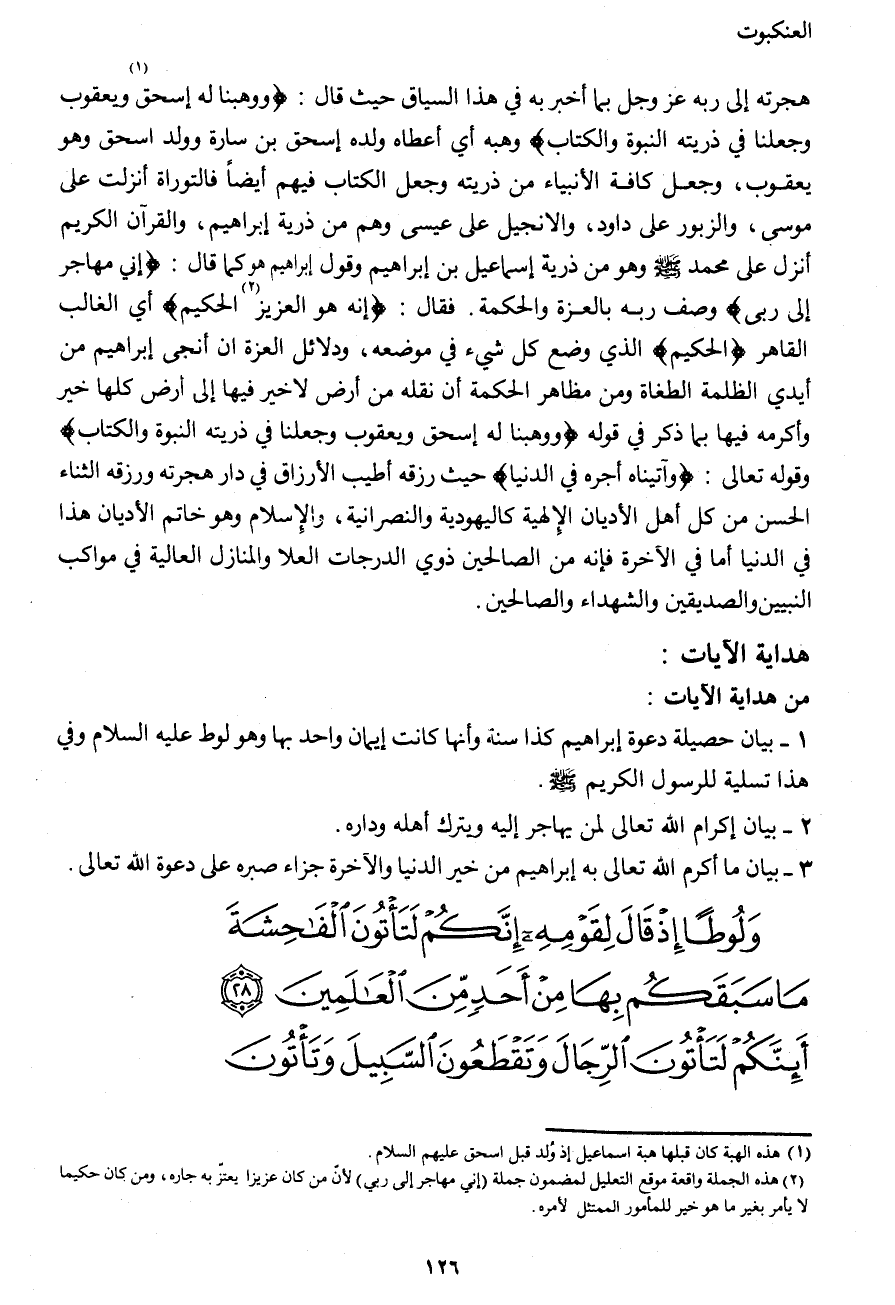 العنكبوت
(١)
هجرته إلى ربه عز وجل بما أخبر به في هذا السياق حيث قال : ﴿ووهبنا له إسحق ويعقوب
وجعلنا في ذريته النبوة والكتاب﴾ وهبه أي أعطاه ولده إسحق بن سارة وولد اسحق وهو
يعقوب، وجعل كافة الأنبياء من ذريته وجعل الكتاب فيهم أيضاً فالتوراة أنزلت على
موسى، والزبور على داود، والانجيل على عيسى وهم من ذرية إبراهيم، والقرآن الكريم
أنزل على محمد ﷺ وهو من ذرية إسماعيل بن إبراهيم وقول إبراهيم هو كما قال : ﴿إني مهاجر
إلى ربى﴾ وصف ربه بالعزة والحكمة. فقال : ﴿إنه هو العزيز(٢) الحكيم﴾ أي الغالب
القاهر ﴿الحكيم﴾ الذي وضع كل شيء في موضعه، ودلائل العزة ان أنجى إبراهيم من
أيدي الظلمة الطغاة ومن مظاهر الحكمة أن نقله من أرض لاخير فيها إلى أرض كلها خير
وأكرمه فيها بما ذكر في قوله ﴿ووهبنا له إسحق ويعقوب وجعلنا في ذريته النبوة والكتاب﴾
وقوله تعالى : ﴿وآتيناه أجره في الدنيا﴾ حيث رزقه أطيب الأرزاق في دار هجرته ورزقه الثناء
الحسن من كل أهل الأديان الإلهية كاليهودية والنصرانية، والإسلام وهو خاتم الأديان هذا
في الدنيا أما في الآخرة فإنه من الصالحين ذوي الدرجات العلا والمنازل العالية في مواكب
النبيين والصديقين والشهداء والصالحين.
هداية الآيات :
من هداية الآيات :
١ - بيان حصيلة دعوة إبراهيم كذا سنة وأنها كانت إيمان واحد بها وهو لوط عليه السلام وفي
هذا تسلية للرسول الكريم ﷺ.
٢ - بيان إكرام الله تعالى لمن يهاجر إليه ويترك أهله وداره.
٣ - بيان ما أكرم الله تعالى به إبراهيم من خير الدنيا والآخرة جزاء صبره على دعوة الله تعالى.
وَلُوطًا إِذْ قَالَ لِقَوْمِهِۦٓ إِنَّكُمْ لَتَأْتُونَ ٱلْفَٰحِشَةَ
مَا سَبَقَكُم بِهَا مِنْ أَحَدٍ مِّنَ ٱلْعَٰلَمِينَ ﴿٢٨﴾
أَئِنَّكُمْ لَتَأْتُونَ ٱلرِّجَالَ وَتَقْطَعُونَ ٱلسَّبِيلَ وَتَأْتُونَ
(١) هذه الهبة كان قبلها هبة اسماعيل إذ وُلد قبل اسحق عليهم السلام.
(٢) هذه الجملة واقعة موقع التعليل لمضمون جملة (إني مهاجر إلى ربي) لأنّ من كان عزيزا يعتزّ به جاره، ومن كان حكيما
لا يأمر بغير ما هو خير للمأمور الممتثل لأمره.
١٢٦